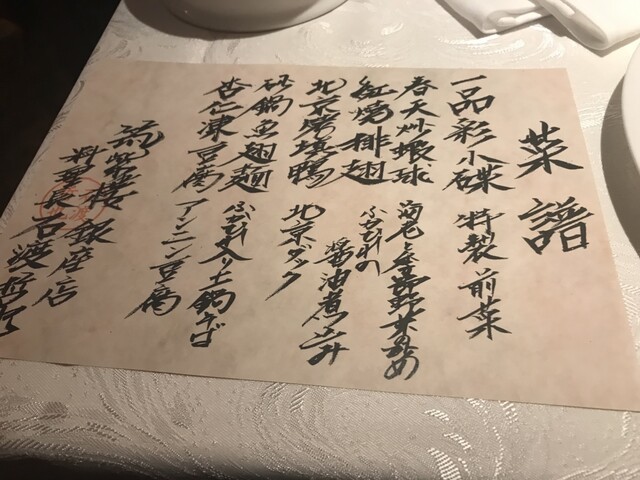 菜譜
一品彩小碟 特製前菜
春天炒蝦球 海老と季節野菜の炒め
紅焼排翅 ふかひれの醤油煮込み
北京烤填鴨 北京ダック
砂鍋魚翅麺 ふかひれ入り土鍋そば
杏仁凍豆腐 アンニン豆腐
銀座店
料理長 石渡